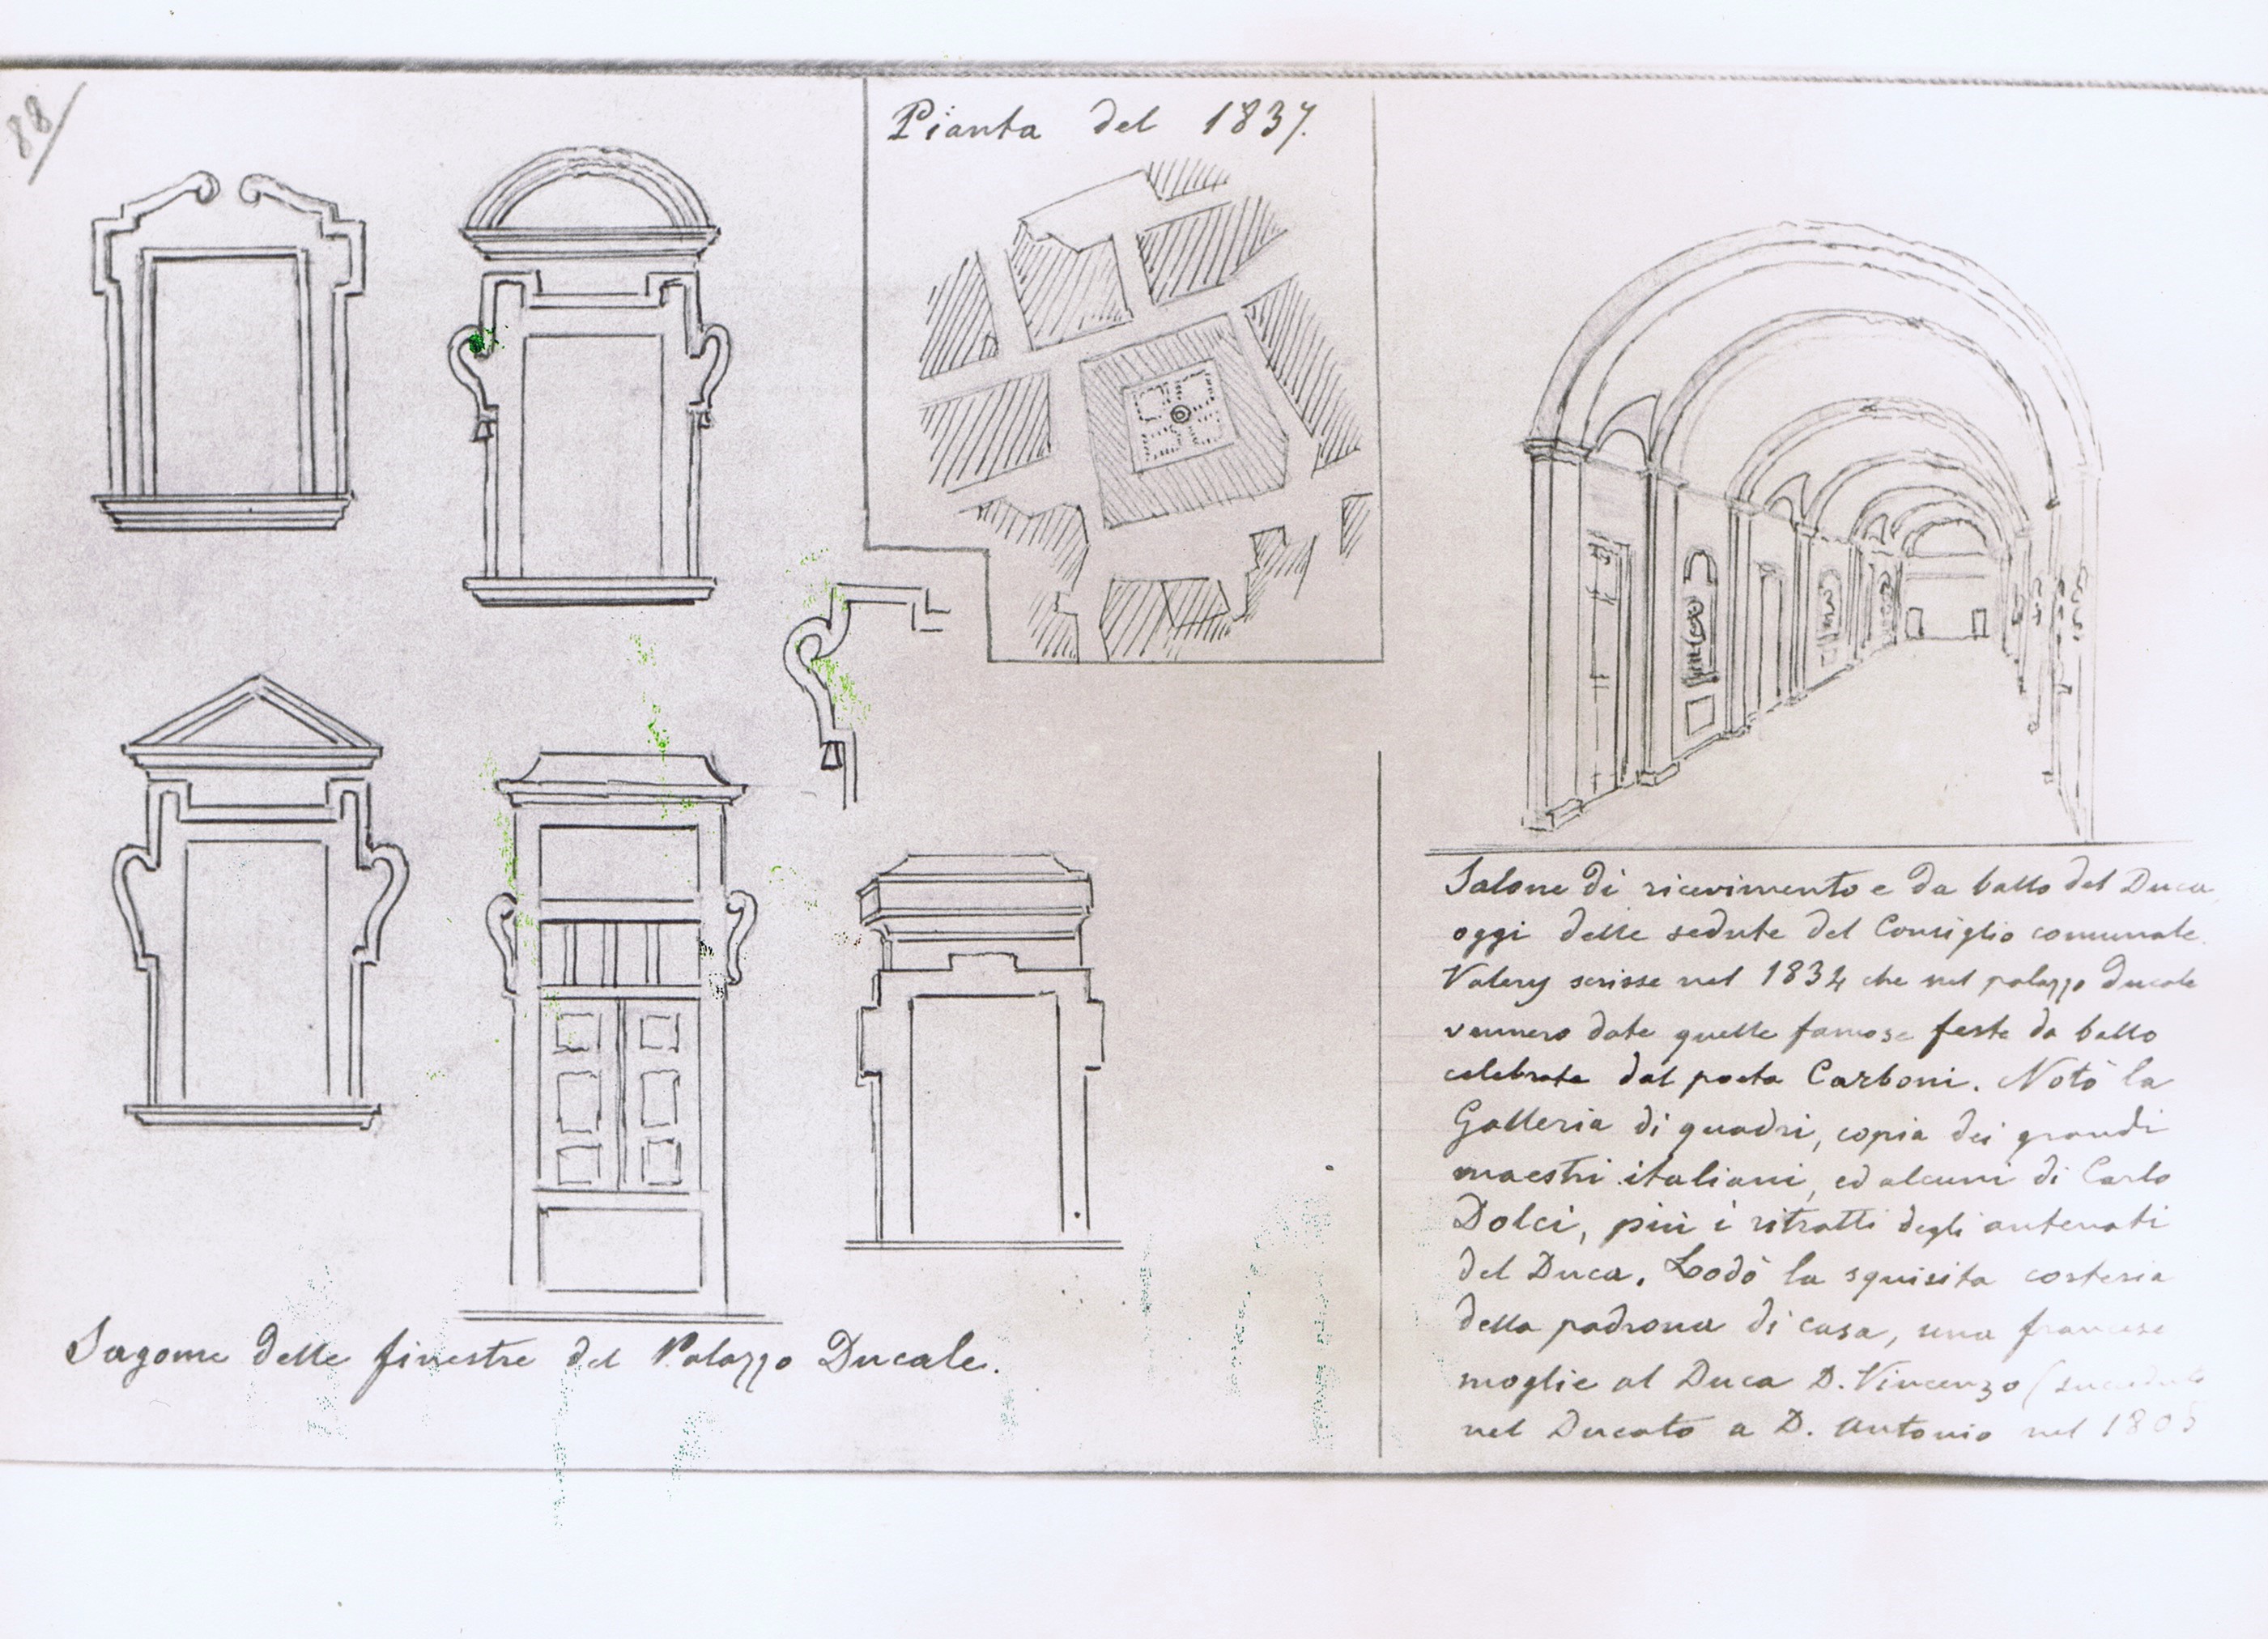 88/
Pianta del 1837.
Sagome delle finestre del Palazzo Ducale.
Salone di ricevimento e da ballo del Duca,
oggi delle sedute del Consiglio comunale.
Valery scrisse nel 1834 che nel palazzo ducale
vennero date quelle famose feste da ballo
celebrate dal poeta Carboni. Notò la
Galleria di quadri, copia dei grandi
maestri italiani, ed alcuni di Carlo
Dolci, più i ritratti degli antenati
del Duca. Lodò la squisita cortesia
della padrona di casa, una francese
moglie al Duca D. Vincenzo (succeduto
nel Ducato a D. Antonio nel 1805